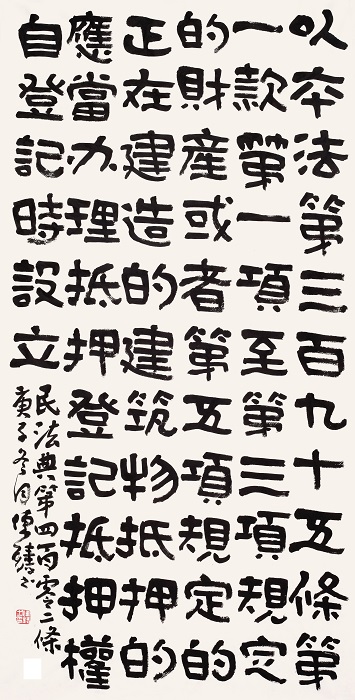 以本法第三百九十五條第
一款第一項至第三項規定
的財產或者第五項規定的
正在建造的建筑物抵押的
應當办理抵押登記抵押權
自登記時設立
民法典第四百零二條
庚子冬月